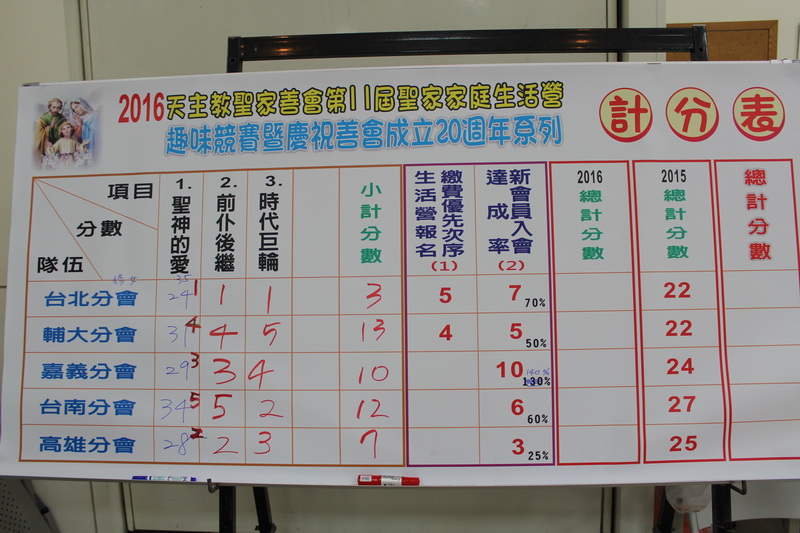 2016天主教聖家善會第11屆聖家家庭生活營
趣味競賽暨慶祝善會成立20週年系列
計分表
項目
分數
隊伍
1. 聖神的愛
2. 前仆後繼
3. 時代巨輪
小計分數
生活營報名繳費優先次序(1)
新會員入會達成率(2)
2016 總計分數
2015 總計分數
總計分數
35
台北分會 24 1 1 1 3 5 7 70% 22
輔大分會 31 4 4 5 13 4 5 50% 22
嘉義分會 29 3 3 4 10 10 140% 130% 24
台南分會 34 5 5 2 12 6 60% 27
高雄分會 28 2 2 3 7 3 25% 25